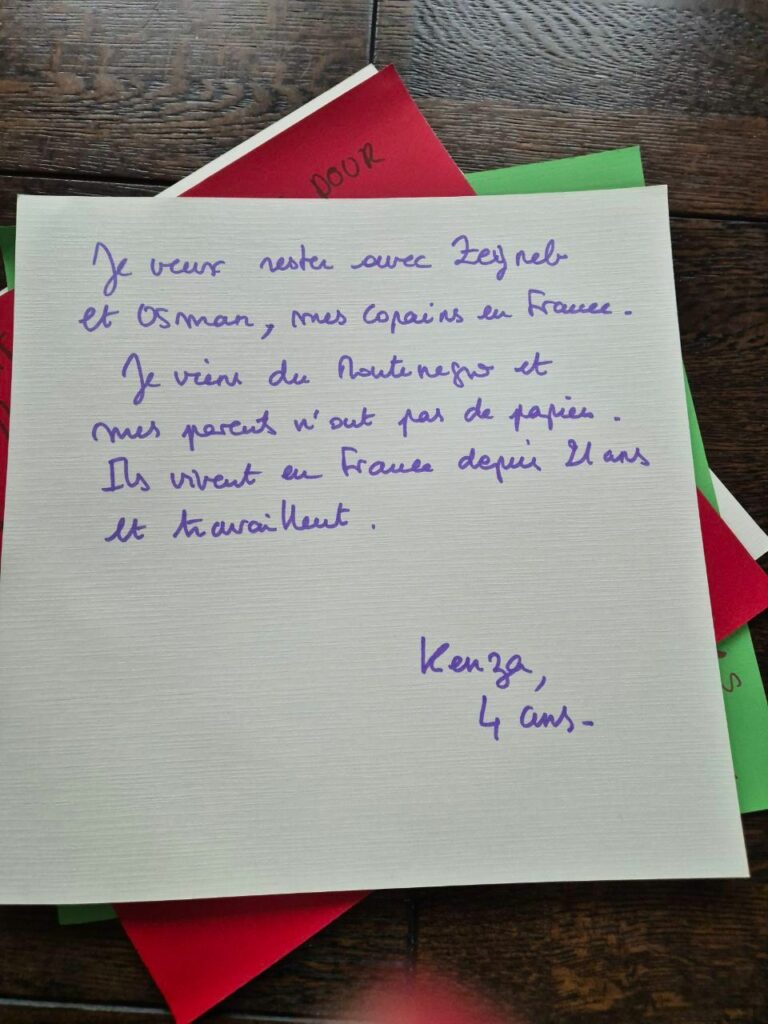 DOUR
Je veux rester avec Zeyneb
et Osman, mes copains en France.
Je viens du Montenegro et
mes parents n'ont pas de papiers.
Ils vivent en France depuis 21 ans
et travaillent.
Kenza,
4 ans.